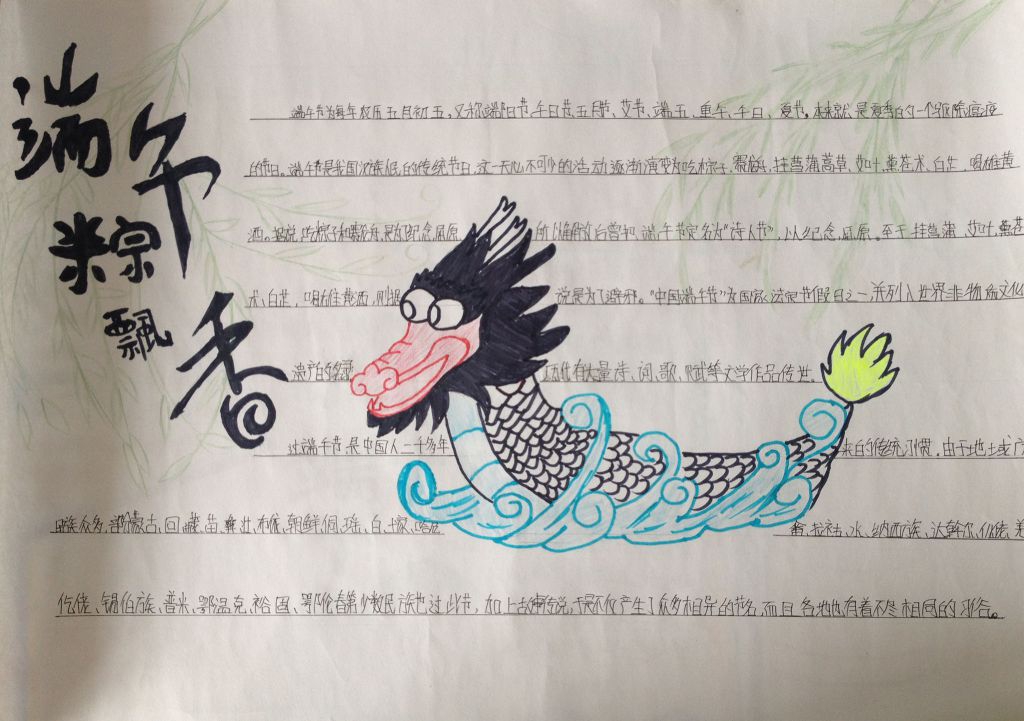 端午
粽
飘
香
端午节为每年农历五月初五,又称端阳节、午日节、五月节、艾节、端五、重午、午日、夏节。本来就是夏季的一个驱除瘟疫
的节日。端午节是我国汉族人民的传统节日,这一天必不可少的活动逐渐演变为吃粽子,赛龙舟,挂菖蒲蒿草、艾叶,薰苍术、白芷,喝雄黄
酒。据说,吃粽子和赛龙舟,是为纪念屈原,所以解放后曾把端午节定名为“诗人节”,以纪念屈原。至于挂菖蒲、艾叶,薰苍
术、白芷,喝雄黄酒,则据说是为了避邪。“中国端午节”为国家法定节假日之一,并列入世界非物质文化
遗产名录 历代有大量诗、词、歌、赋等文学作品传世。
过端午节,是中国人二千多年来的传统习惯,由于地域广
民族众多,部分蒙古、回、藏、苗、彝、壮、布依、朝鲜、侗、瑶、白、土家、哈尼 畲、拉祜、水、纳西族、达斡尔、仫佬、羌
仡佬、锡伯族、普米、鄂温克、裕固、鄂伦春等少数民族也过此节,加上 传说,于是不仅产生了众多相异的节名,而且各地也有着不尽相同的习俗。